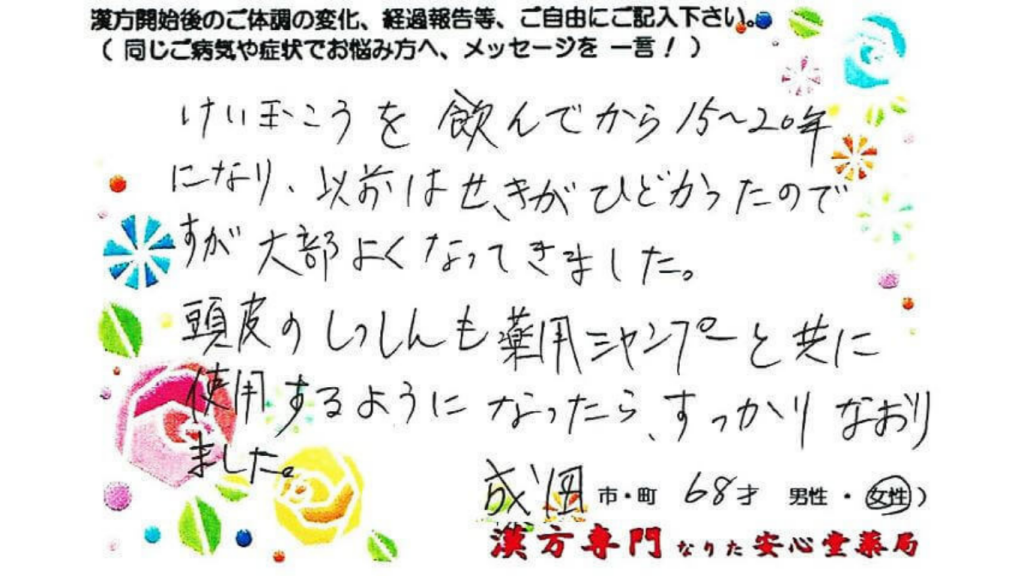 漢方開始後のご体調の変化、経過報告等、ご自由にご記入下さい。
( 同じご病気や症状でお悩み方へ、メッセージを 一言！)
けい玉こうを 飲んでから 15〜20年
になり、以前はせきがひどかったので
すが 大部よくなってきました。
頭皮のしっしんも薬用シャンプーと共に
使用するようになったら、すっかりなおり
ました。
成田 市・町 68才 男性・女性)
漢方専門 なりた 安心堂薬局